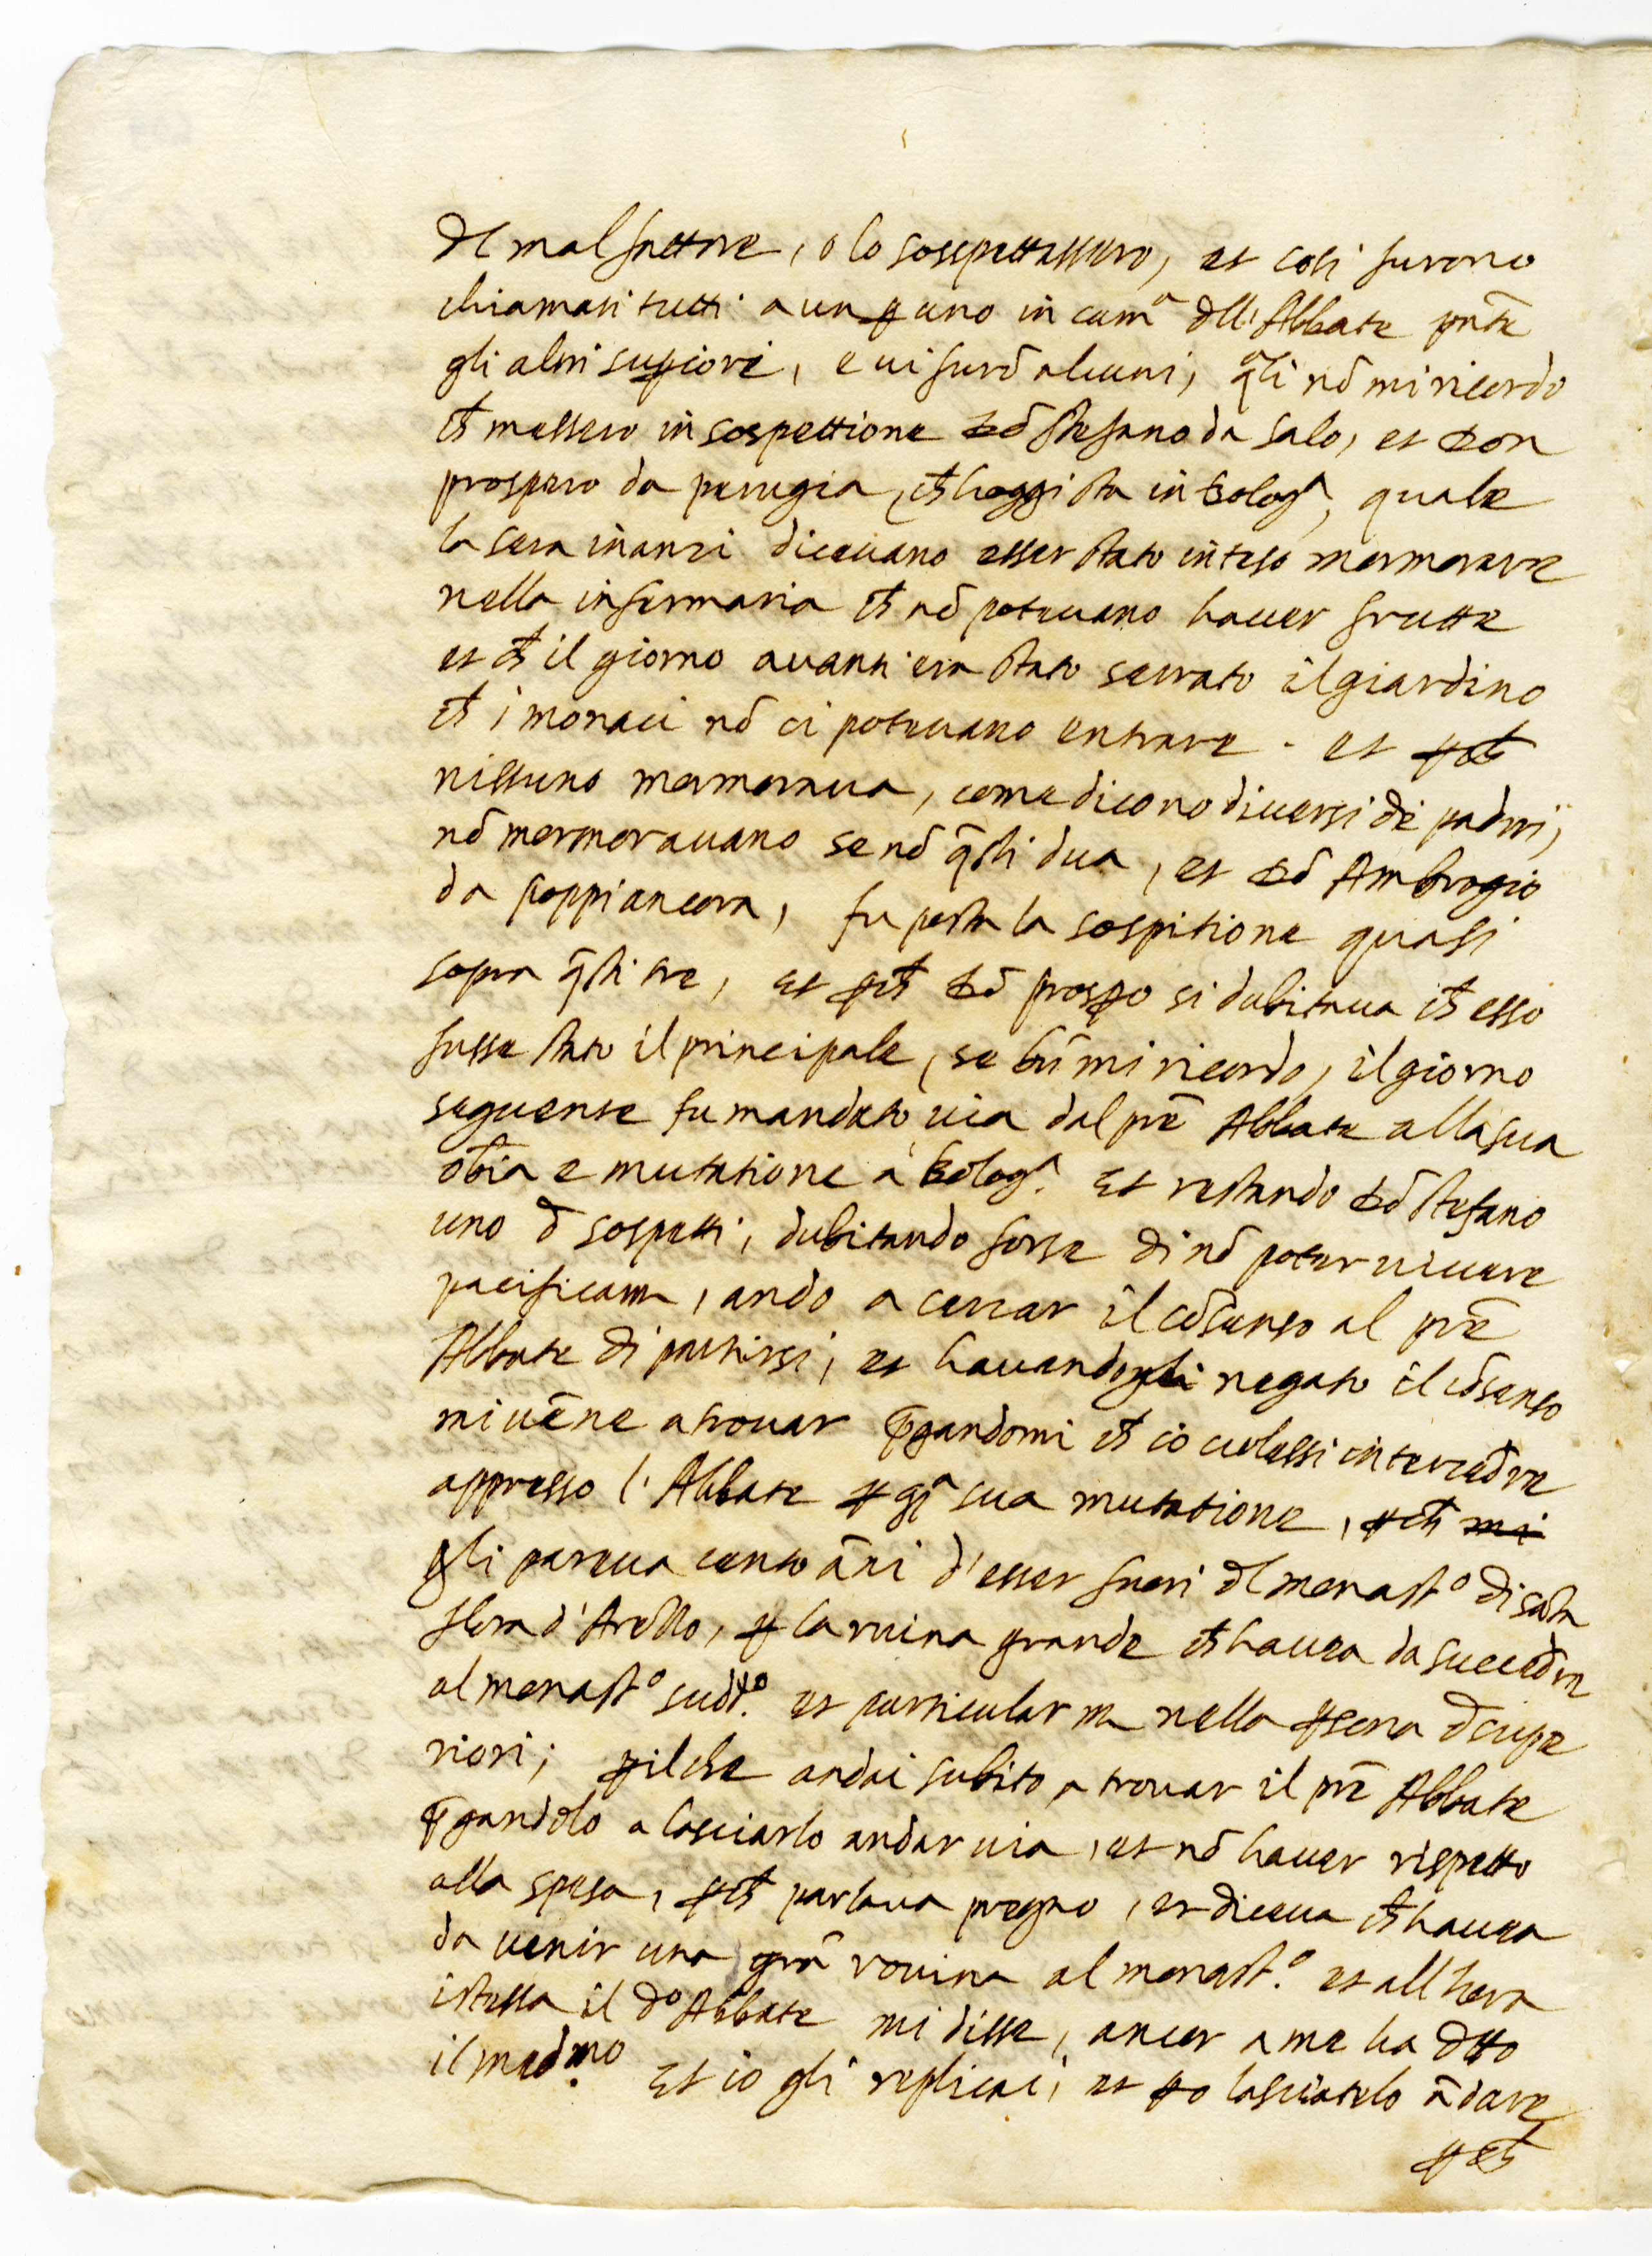 del malfattore, o lo sosspettassero, et cosi furono
chiamati tutti a un ꝑ uno in camᵃ dell'Abbate pn̄te
gli altri suꝑiori, e vi furō alcuni, q̄li nō mi ricordo
ch̄ messero in sospettione Dō Stefano da Salo, et Don
prospero da perugia, ch̄ hoggi sta in Bologᵃ, quale
la sera inanzi diceuano esser stato inteso mormorare
nella infermaria ch̄ nō poteuano hauer frutte
et ch̄ il giorno auanti era stato serrato il giardino
ch̄ i monaci nō ci poteuano entrare. et ꝑch̄
nissuno mormoraua, come dicono diuersi de padri,
nō mormorauano se nō q̄sti dua, et Dō Ambrogio
da poppi ancora, fu posta la sospitione quasi
sopra q̄sti tre, et ꝑch̄ Dō prosꝑo si dubitaua ch̄ esso
fusse stato il principale, se bn̄ mi ricordo, il giorno
seguente fu mandato via dal prē Abbate alla sua
obīa e mutatione a Bologᵃ. Et restando Dō Stefano
uno d sospetti, dubitando forse di nō poter viuere
pacificam, ando a cercar il cōsenso al prē
Abbate di partirsi, et hauendogli negato il cōsenso
mi vēne a trouar p̄gandomi ch̄ io volessi intercedre
appresso l'Abbate ꝑ q̄ᵃ sua mutatione, ꝑch̄ mi
gli pareua cento āni d'esser fuori dl monastº di sāta
flora d'Arezzo, ꝑ la ruina grande ch̄ hauea da succedre
al monastº sudtº. et particularm nella ꝑsona d supe
riori; ꝑilche andai subito a trouar il prē Abbate
p̄gandolo a lasciarlo andar via, et nō hauer rispetto
alla spesa, ꝑch̄ parlaua pregno, et diceua ch̄ hauea
da venir una grā rouina al monastº. et all'hora
istessa il dº Abbate mi disse, ancor a me ha dtto
il medmo. Et io gli replicai, et ꝑo lasciatelo ādare
ꝑch̄